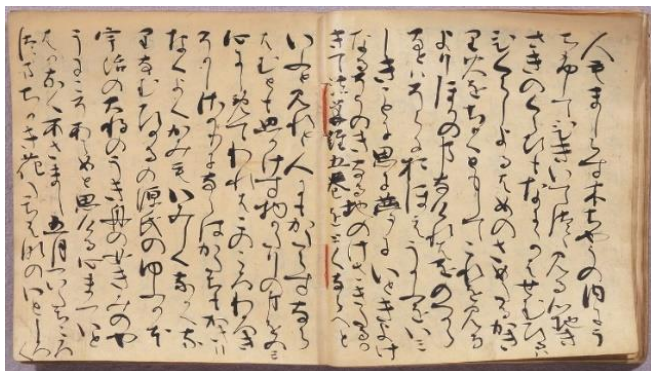 人もましらす木ちやうの内にう
ちふしてひきいてつゝ見る心地き
さきのくらひもなにゝかはせむひるは
ひくらしよるはめのさめたるかき
り火をちかくともしてこれを見る
よりほかの事なけれはをのつから
なとはそらにおほえうかふをいみ
しきことに思に夢にいときよけ
なるそうのきなる地のけさきたるか
きて法華経五巻をとくならへと
いふと見れと人にもかたらすなら
はむとも思かけす物かたりの事をのみ
心にしめてわれはこのころわろき
そかしさかりにならはかたちもかきり
なくよくかみもいみしくなかくな
りなむひかるの源氏のゆふかほ
宇治の大将のうき舟の女きみのや
うにこそあらめと思ける心まついと
はかなくあさまし五月ついたちころ
つまちかき花たち花のいとしろく